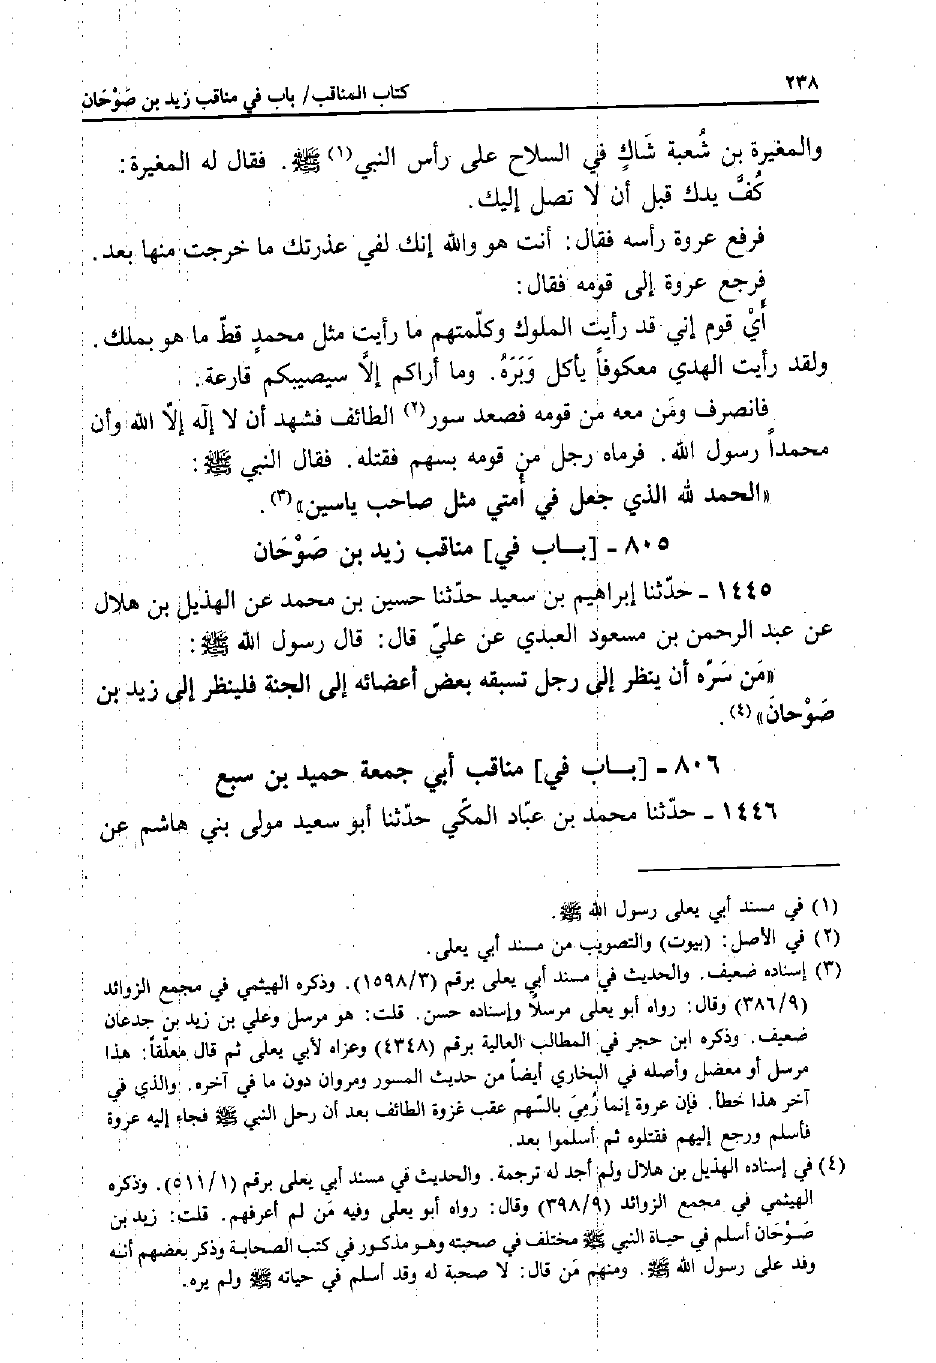 ٢٣٨
كتاب المناقب/ باب في مناقب زيد بن صَوْحَان
والمغيرة بن شُعبة شَاكٍ في السلاح على رأس النبي(١) ﷺ. فقال له المغيرة:
كُفَّ يدك قبل أن لا تصل إليك.
فرفع عروة رأسه فقال: أنت هو والله إنك لفي عذرتك ما خرجت منها بعد.
فرجع عروة إلى قومه فقال:
أَيْ قوم إني قد رأيت الملوك وكلّمتهم ما رأيت مثل محمدٍ قطّ ما هو بملك.
ولقد رأيت الهدي معكوفاً يأكل وَبَرَهُ. وما أراكم إلاَّ سيصيبكم قارعة.
فانصرف ومَن معه من قومه فصعد سور(٢) الطائف فشهد أن لا إله إلاّ الله وأن
محمداً رسول الله. فرماه رجل من قومه بسهم فقتله. فقال النبي ﷺ:
«الحمد لله الذي جعل في أُمتي مثل صاحب ياسين»(٣).
٨٠٥ - [بـاب في] مناقب زيد بن صَوْحَان
١٤٤٥ - حدّثنا إبراهيم بن سعيد حدّثنا حسين بن محمد عن الهذيل بن هلال
عن عبد الرحمن بن مسعود العبدي عن عليّ قال: قال رسول الله ﷺ:
«مَن سَرَّه أن ينظر إلى رجل تسبقه بعض أعضائه إلى الجنة فلينظر إلى زيد بن
صَوْحانَ»(٤).
٨٠٦ - [بـاب في] مناقب أبي جمعة حميد بن سبع
١٤٤٦ - حدّثنا محمد بن عبّاد المكّي حدّثنا أبو سعيد مولى بني هاشم عن
(١) في مسند أبي يعلى رسول الله ﷺ.
(٢) في الأصل: (بيوت) والتصويب من مسند أبي يعلى.
(٣) إسناده ضعيف. والحديث في مسند أبي يعلى برقم (١٥٩٨/٣). وذكره الهيثمي في مجمع الزوائد
(٣٨٦/٩) وقال: رواه أبو يعلى مرسلاً وإسناده حسن. قلت: هو مرسل وعلي بن زيد بن جدعان
ضعيف. وذكره ابن حجر في المطالب العالية برقم (٤٣٤٨) وعزاه لأبي يعلى ثم قال معلّقاً: هذا
مرسل أو معضل وأصله في البخاري أيضاً من حديث المسور ومروان دون ما في آخره. والذي في
آخر هذا خطأ. فإن عروة إنما رُمِيَ بالسّهم عقب غزوة الطائف بعد أن رحل النبي ﷺ فجاء إليه عروة
فأسلم ورجع إليهم فقتلوه ثم أسلموا بعد.
(٤) في إسناده الهذيل بن هلال ولم أجد له ترجمة. والحديث في مسند أبي يعلى برقم (٥١١/١). وذكره
الهيثمي في مجمع الزوائد (٣٩٨/٩) وقال: رواه أبو يعلى وفيه مَن لم أعرفهم. قلت: زيد بن
صَوْحَان أسلم في حياة النبي ﷺ مختلف في صحبته وهو مذكور في كتب الصحابة وذكر بعضهم أنه
وفد على رسول الله ﷺ. ومنهم مَن قال: لا صحبة له وقد أسلم في حياته ﷺ ولم يره.